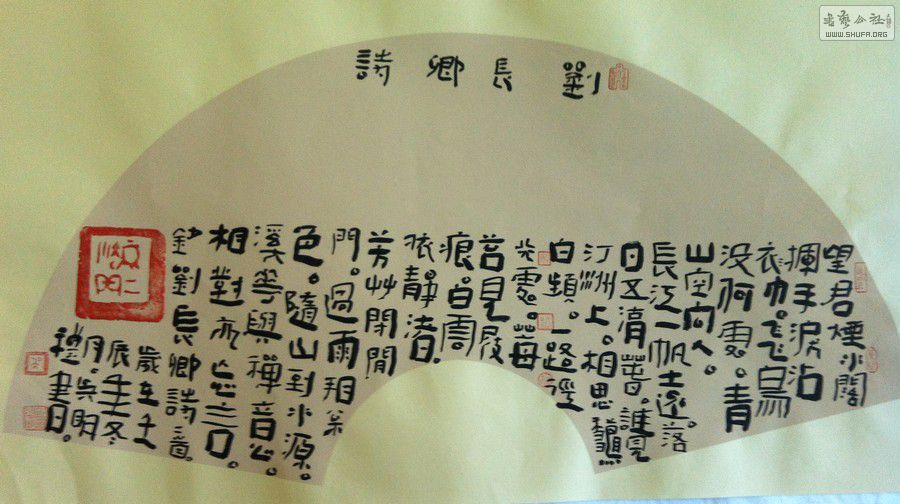 劉長卿詩
望君煙水闊
揮手淚沾
衣巾。飛鳥
沒何處。青
山空向人。
長江一帆遠落
日五湖春。誰見
汀洲上。相思愁
白蘋。一路經
行處。莓
苔見履
痕。白雲
依靜渚。
芳艸閉閒
門。過雨看松
色。隨山到水源。
溪花與禪意。
相對亦忘言。
鈔劉長卿詩二首。
歲在壬
辰年冬
月。吳明
禮書
書藝公社
WWW.SHUFA.ORG